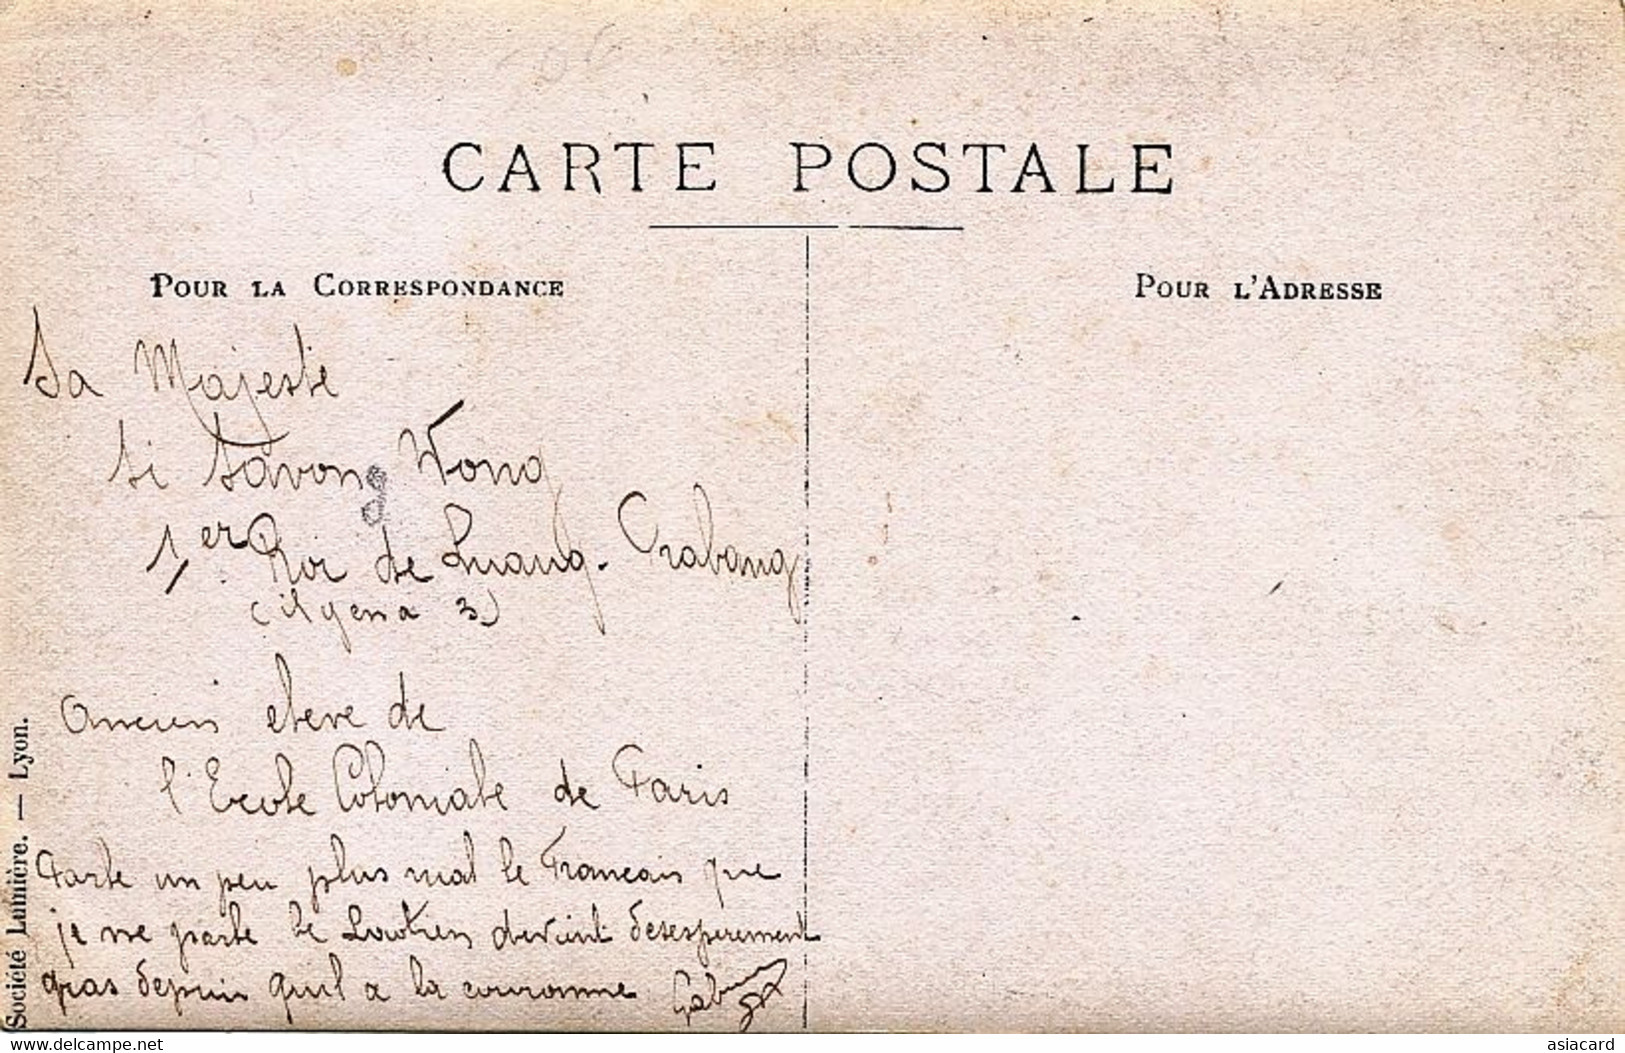 CARTE POSTALE
POUR LA CORRESPONDANCE
POUR L'ADRESSE
Sa Majesté
Si Savong Wong
1er Roi de Luang-Prabang
(il y en a 3)
Ancien eleve de
l'Ecole Coloniale de Paris
Parle un peu plus mal le Francais que
je ne parle le Laotien devient desesperement
gras depuis qu'il a la couronne
Société Lumière. — Lyon.
www.delcampe.net
asiacard